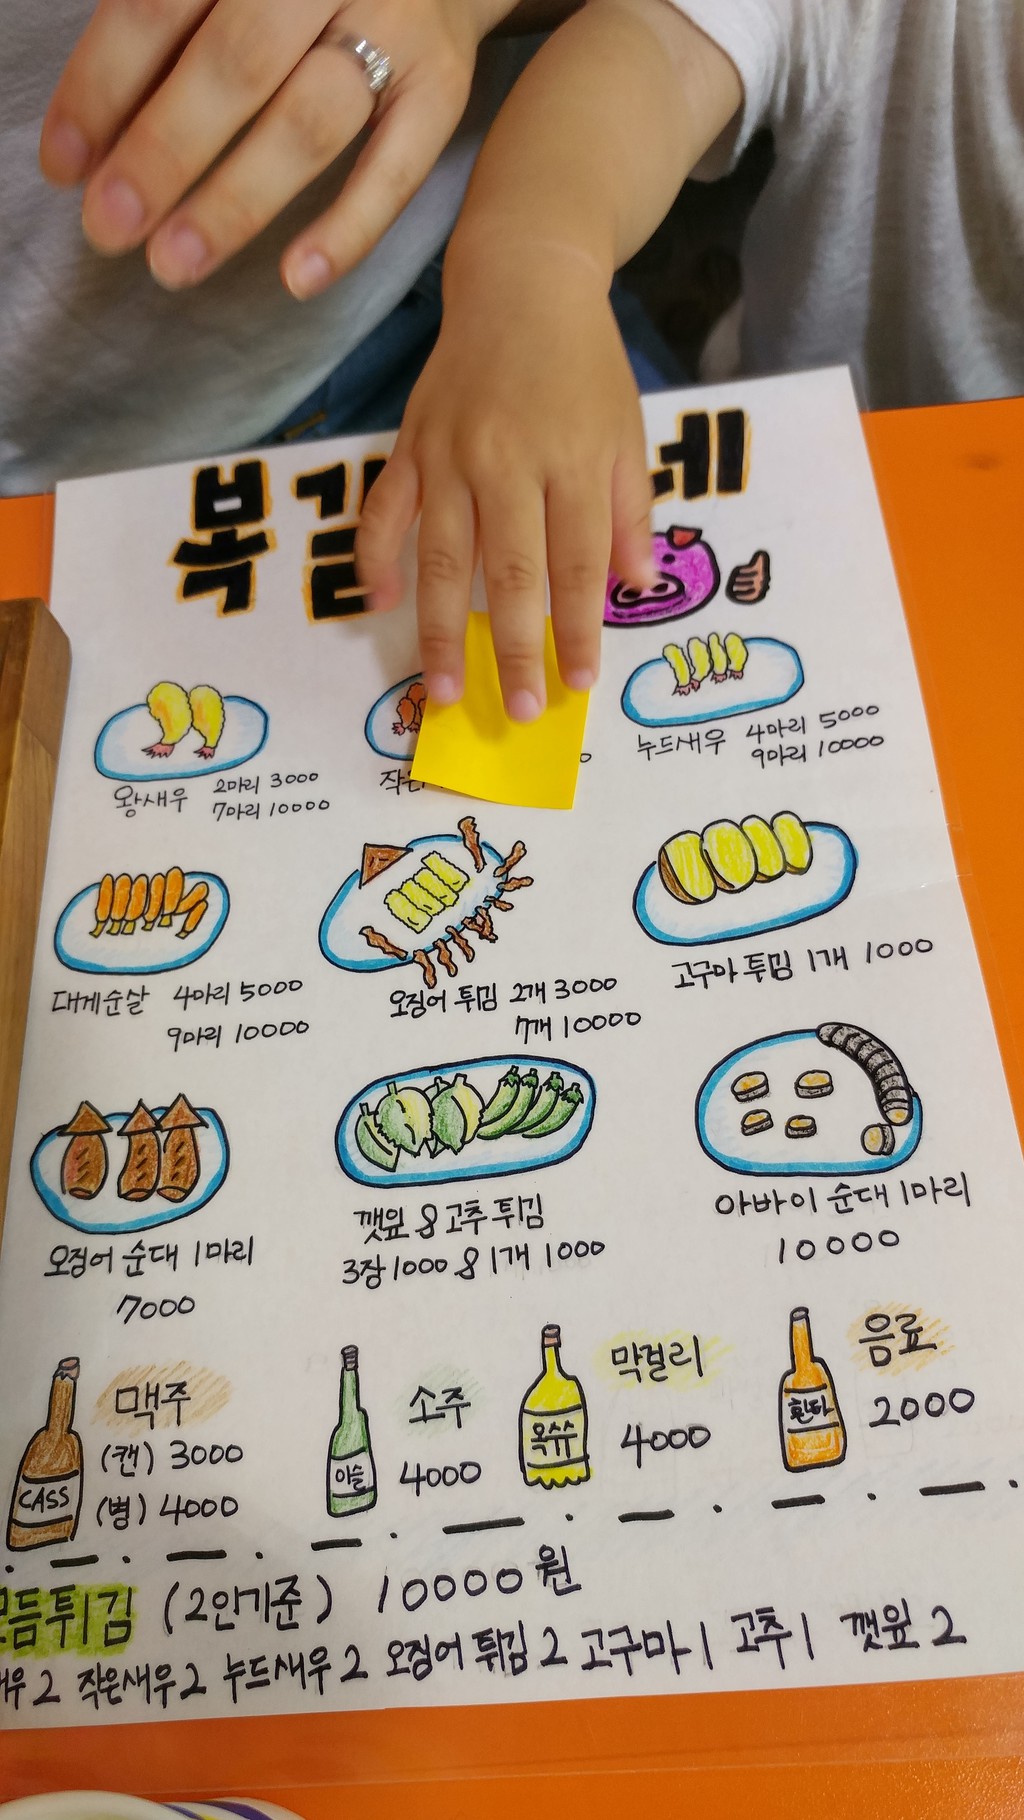 네
왕새우 2마리 3000
7마리 10000
작은
누드새우 4마리 5000
9마리 10000
대게순살 4마리 5000
9마리 10000
오징어 튀김 2개 3000
7개 10000
고구마 튀김 1개 1000
오징어 순대 1마리
7000
깻잎 & 고추 튀김
3장 1000 & 1개 1000
아바이 순대 1마리
10000
CASS
맥주
(캔) 3000
(병) 4000
이슬
소주
4000
옥수수
막걸리
4000
환타
음료
2000
모듬튀김 (2인기준) 10000원
새우 2 작은새우 2 누드새우 2 오징어 튀김 2 고구마 1 고추 1 깻잎 2